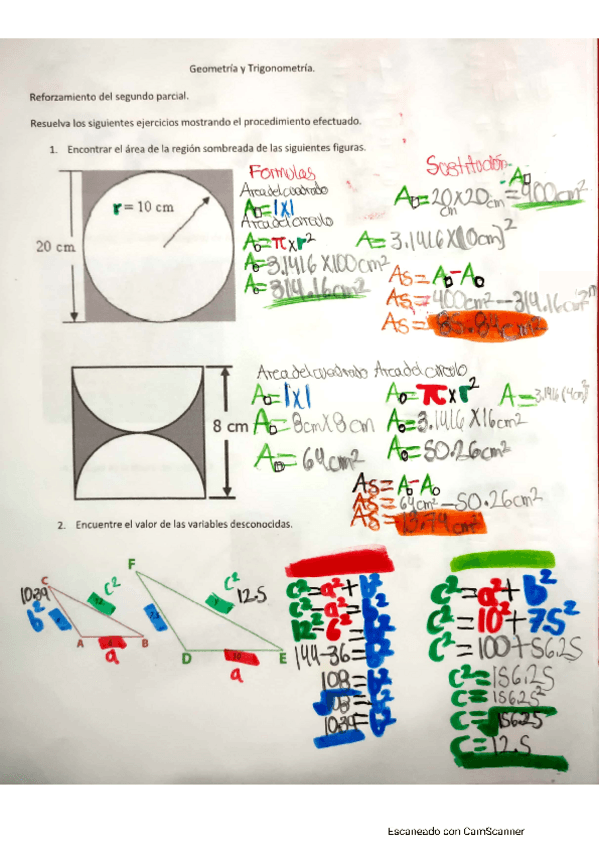 Geometría y Trigonometría.
Reforzamiento del segundo parcial.
Resuelva los siguientes ejercicios mostrando el procedimiento efectuado.
1. Encontrar el área de la región sombreada de las siguientes figuras.
Formulas
Area del cuadrado
A□=lxl
Area del circulo
A○=πxr²
A○=3.1416x100cm²
A○=314.16cm²
Sustitución
A□=20cmx20cm=400cm²
A=3.1416x(10cm)²
As=A□-A○
As=400cm²-314.16cm²
As=85.84cm²
r = 10 cm
20 cm
8 cm
Area del cuadrado
A□=lxl
A□=8cmx8cm
A□=64cm²
Area del circulo
A○=πxr²
A=3.1416(4cm)²
A○=3.1416x16cm²
A○=50.26cm²
As=A□-A○
As=64cm²-50.26cm²
As=13.74cm²
2. Encuentre el valor de las variables desconocidas.
C
10.39
b²
c²
A
B
a
F
c²
12.5
D
E
a
c²=a²+b²
c²-a²=b²
12²-6²=b²
144-36=b²
108=b²
10.39=b²
c²=a²+b²
c²=10²+7.5²
c²=100+56.25
c²=156.25
c=156.25²
c=√156.25
c=12.5
Escaneado con CamScanner